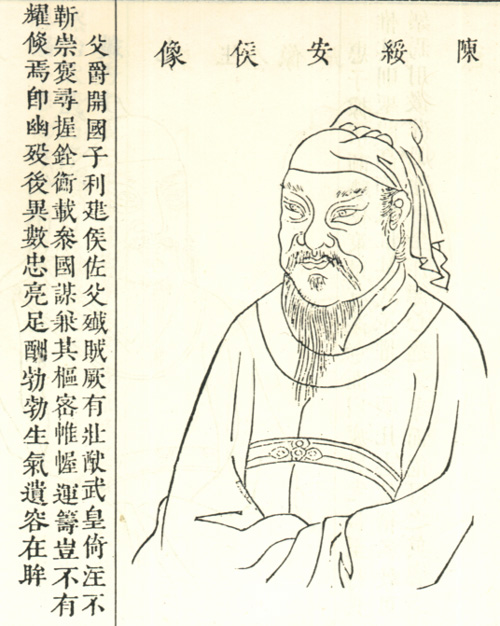 陳綏安侯像
父爵開國子利建侯佐父殲賊厥有壯猷武皇倚注不
靳崇褒尋握銓衡載叅國謀兼其樞密帷幄運籌豈不有
耀倐焉卽幽歿後異數忠亮足酬勃勃生氣遺容在眸